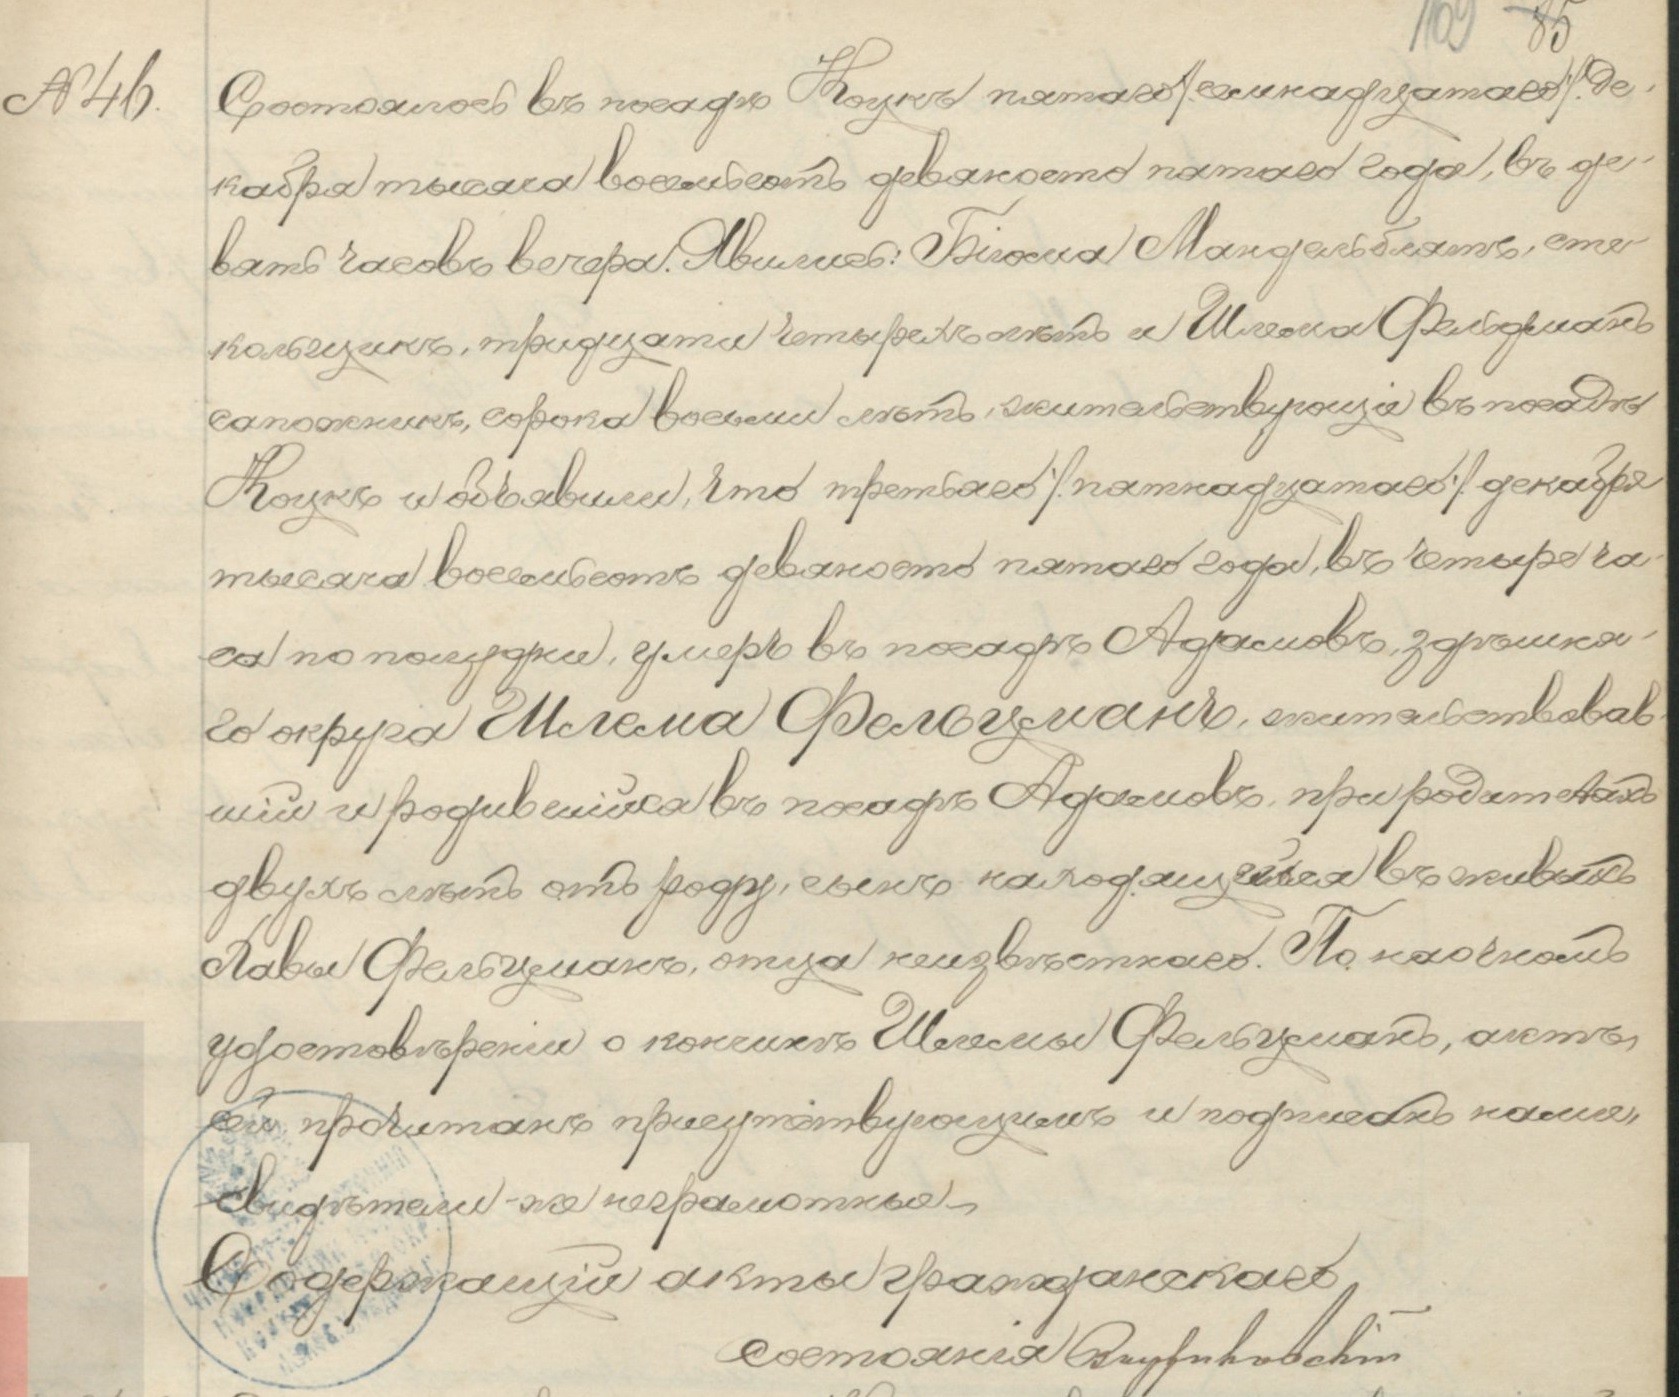 109 85
№ 46.
Состоялось въ посадѣ Коцкъ пятаго /:семнадцатаго:/ Де-
кабря тысяча восемьсотъ девяносто пятаго года, въ де-
вять часовъ вечера. Явились: Мандельблатъ, сте-
кольщикъ, тридцати четырехъ лѣтъ и Шлема Фельдманъ
сапожникъ, сорока восьми лѣтъ, жительствующіе въ посадѣ
Коцкѣ и объявили, что третьяго /:пятнадцатаго:/ декабря
тысяча восемьсотъ девяносто пятаго года, въ четыре ча-
са по полудни, умеръ въ посадѣ Адамовъ, здѣшня-
го округа Шлема Фельцманъ, жительствовав-
шій и родившійся въ посадѣ Адамовъ, при родителяхъ
двухъ лѣтъ отъ роду, сынъ находящейся въ живыхъ
Фельцманъ, отца неизвѣстнаго. По наочномъ
удостовѣреніи о кончинѣ Шлемы Фельцманъ, актъ
сей прочитанъ присутствующимъ и подписанъ нами,
свидѣтели-же неграмотные.
Содержащій акты гражданскаго
состоянія